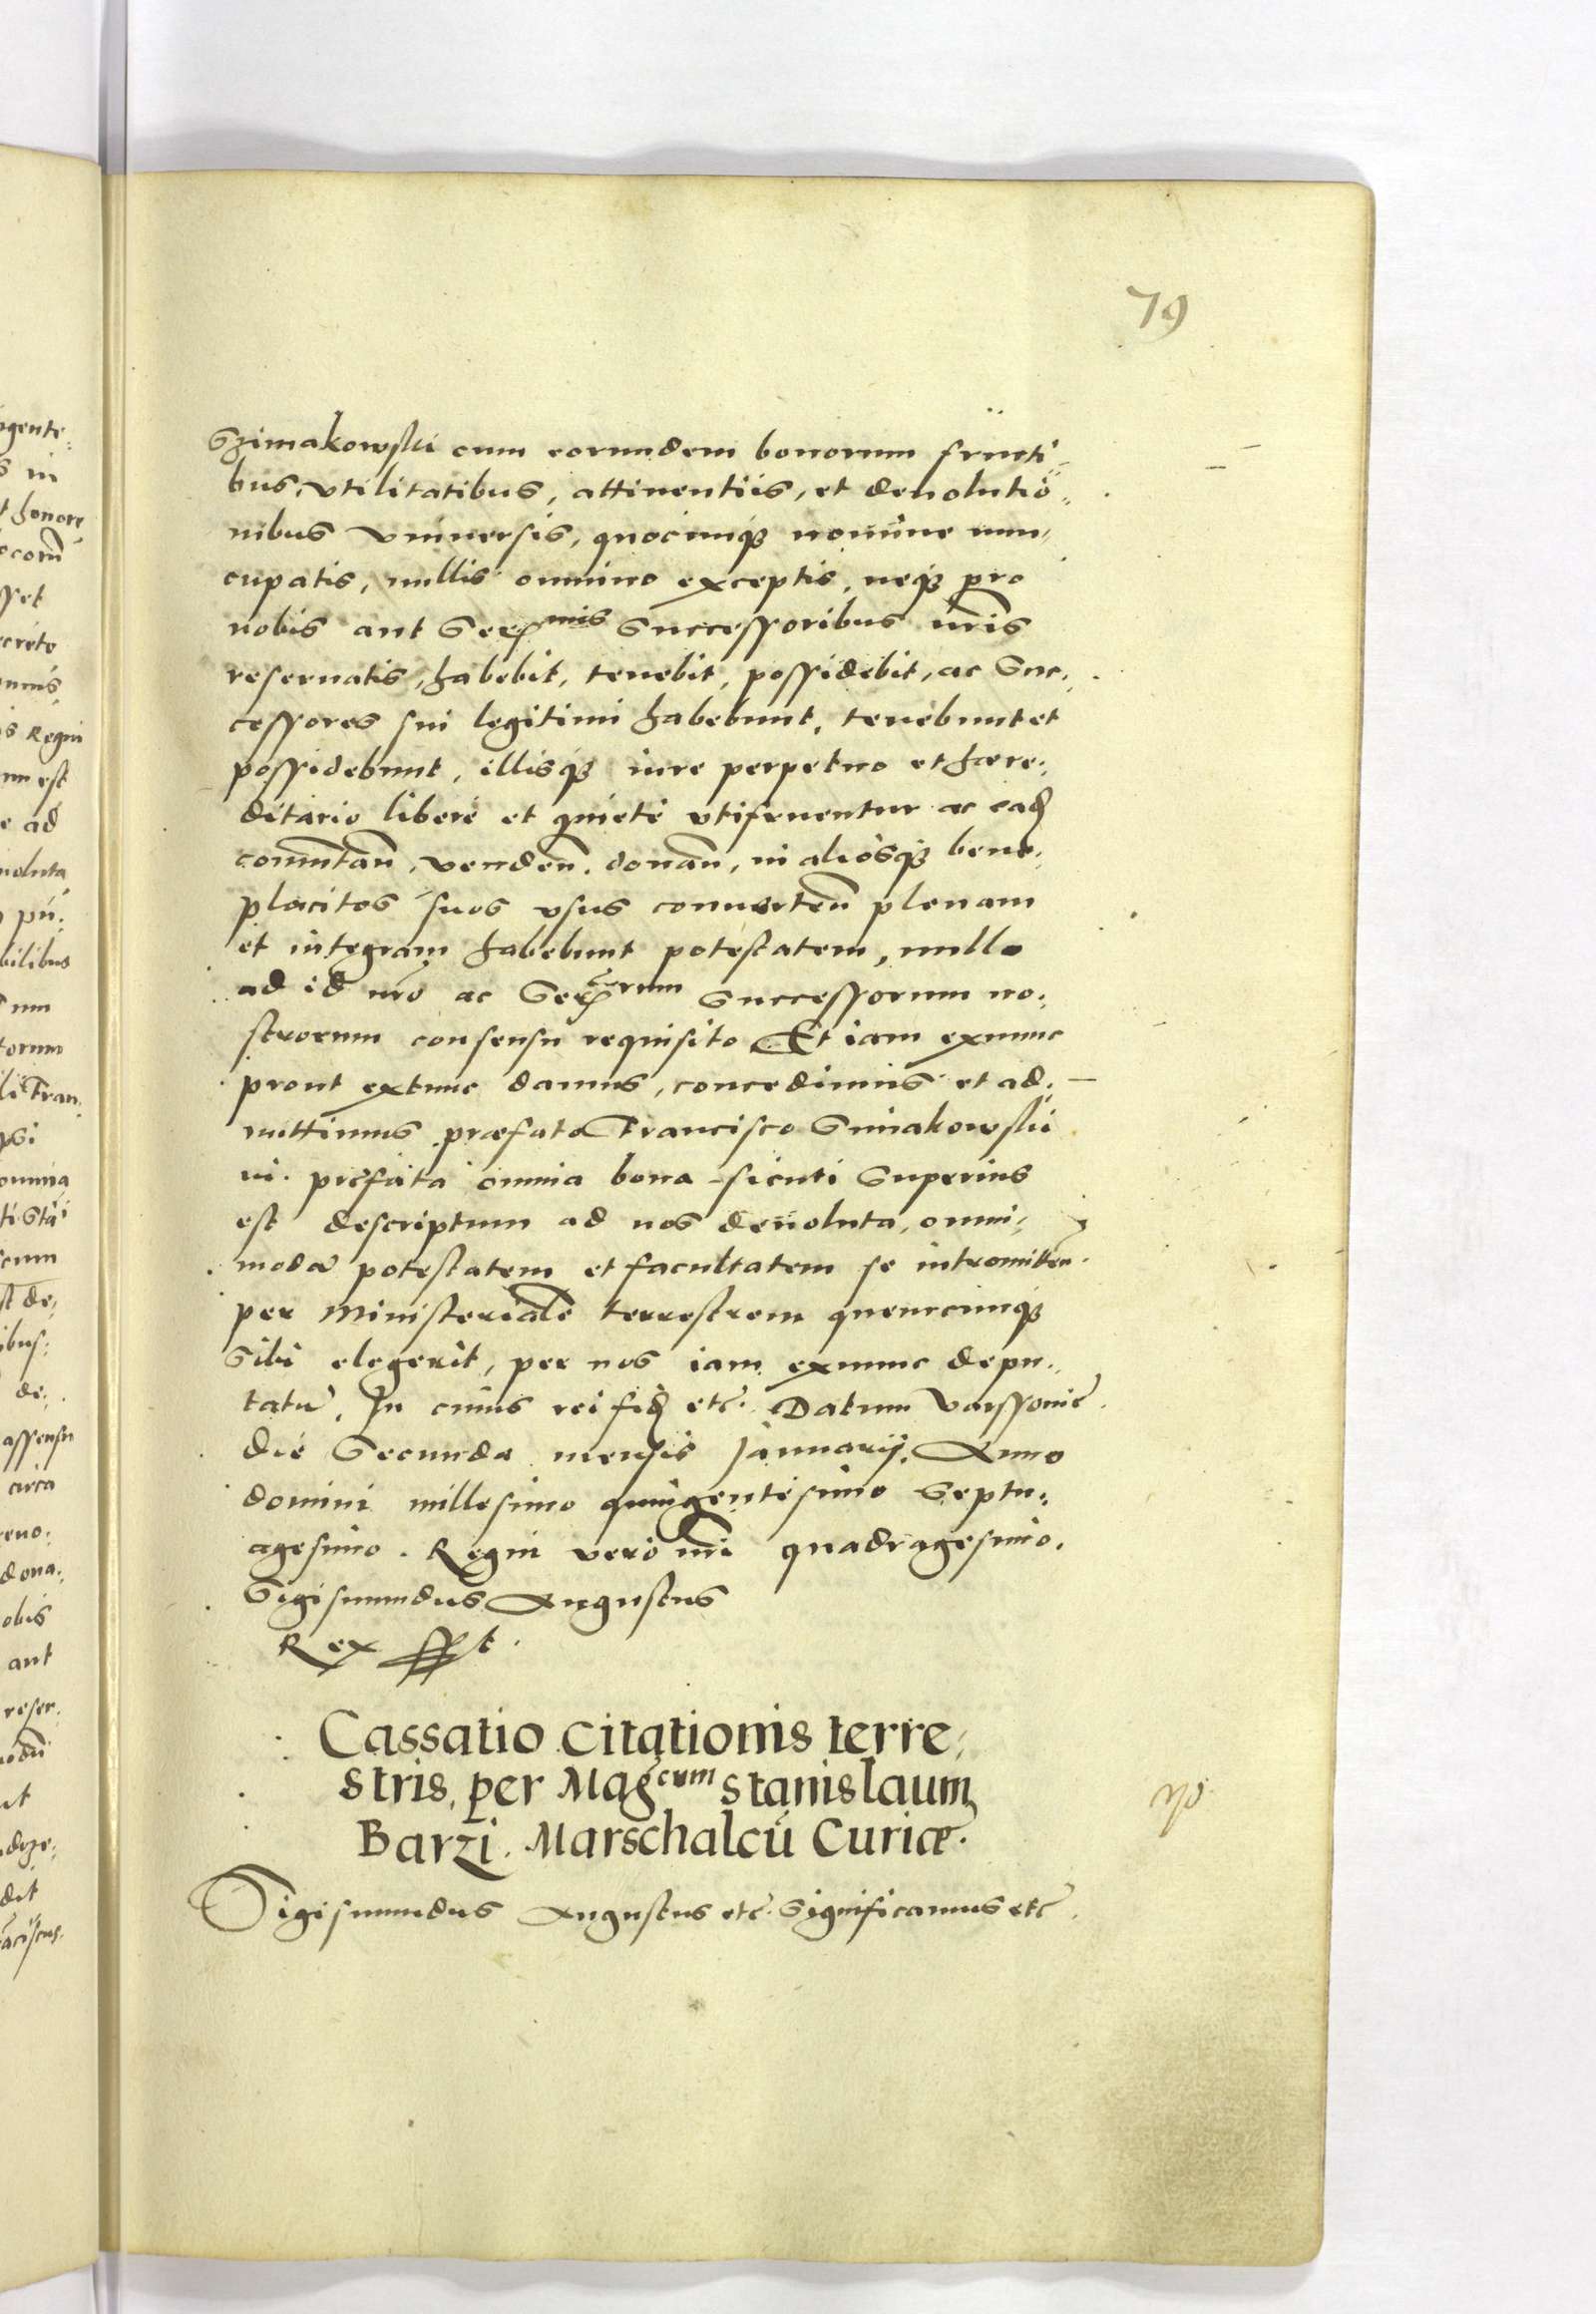 79
Szimakowski cum eorundem bonorum fructi-
bus, vtilitatibus, attinentiis, et deuolutio-
nibus vniuersis, quocunq3 nomine nun-
cupatis, nullis omnino exceptis, neq3 pro
nobis aut Seren̄mis Successoribus nr̄is
reseruatis, habebit, tenebit, possidebit, ac Suc-
cessores sui legitimi habebunt, tenebunt et
possidebunt, illisq3 iure perpetuo et hære-
ditario liberè et quietè vtifruentur ac ead
com̄utan̄, venden̄. donan̄, in aliosq3 bene-
placitos suos vsus conuerten̄ plenam
et integram habebunt potestatem, nullo
ad id nr̄o ac Seren̄rum Successorum no-
strorum consensu requisito Et iam exnunc
prout extunc damus, concedimus et ad-
mittimus præfato Francisco Simakowski
in præfata omnia bona sicuti Superius
est descriptum ad nos deuoluta, omni-
modā potestatem et facultatem se intromitten̄
per Ministerialē terrestrem quemcunq3
Sibi elegerit, per nos iam exnunc depu-
tatū. In cuius rei fid etc. Datum Varssouie
die Secunda mensis Januarij. Anno
domini millesimo quingentesimo Septu-
agesimo. Regni verò nr̄i quadragesimo.
Sigismundus Augustus
Rex sst.
Cassatio citationis terre-
stris, per Magcum Stanislaum
Barzi. Marschalcū Curiæ.
Sigismundus Augustus etc. Significamus etc.